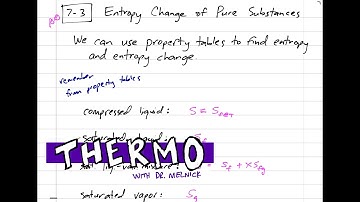 7-3 Entropy Change of Pure Substances
We can use property tables to find entropy
and entropy change.
remember
from property tables
compressed liquid: S = S
THERMO
WITH DR. MELNICK
= Sf + xSfg
saturated vapor: Sg